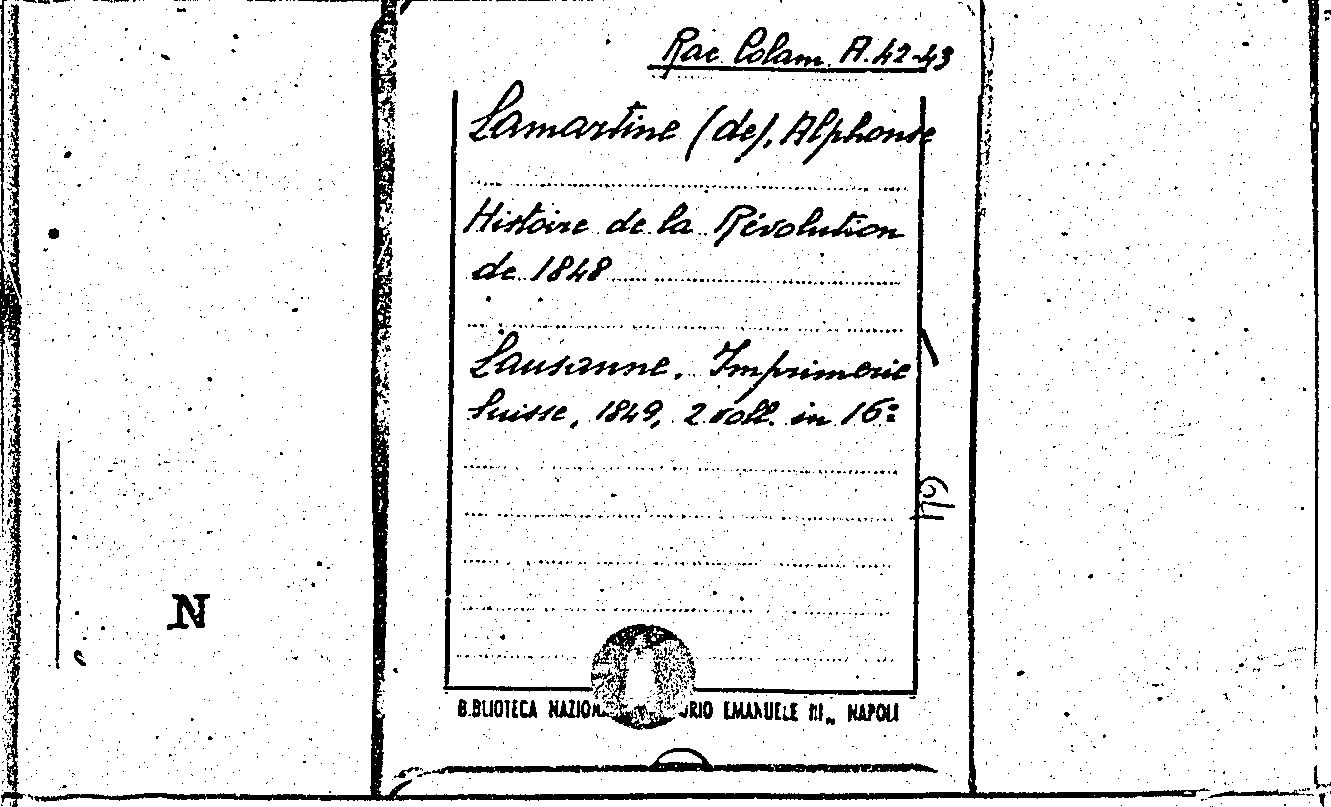 Rac Colam A.42-43
Lamartine (de), Alphonse
Histoire de la Révolution
de 1848
Lausanne, Imprimerie
Suisse, 1849, 2 voll. in 16º
N
BIBLIOTECA EMANUELE III„ NAPOLI